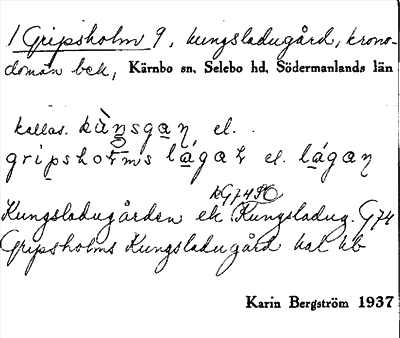 1 Gripsholm 9, kungsladugård, krono-
domän bek, Kärnbo sn, Selebo hd, Södermanlands län
kallas. kùnsgaŋ el.
gripshol̥ms lágat el. lágaŋ
KG74 SO
Kungsladugården ek Kungsladug. G74
Gripsholms Kungsladugård kal hb
Karin Bergström 1937